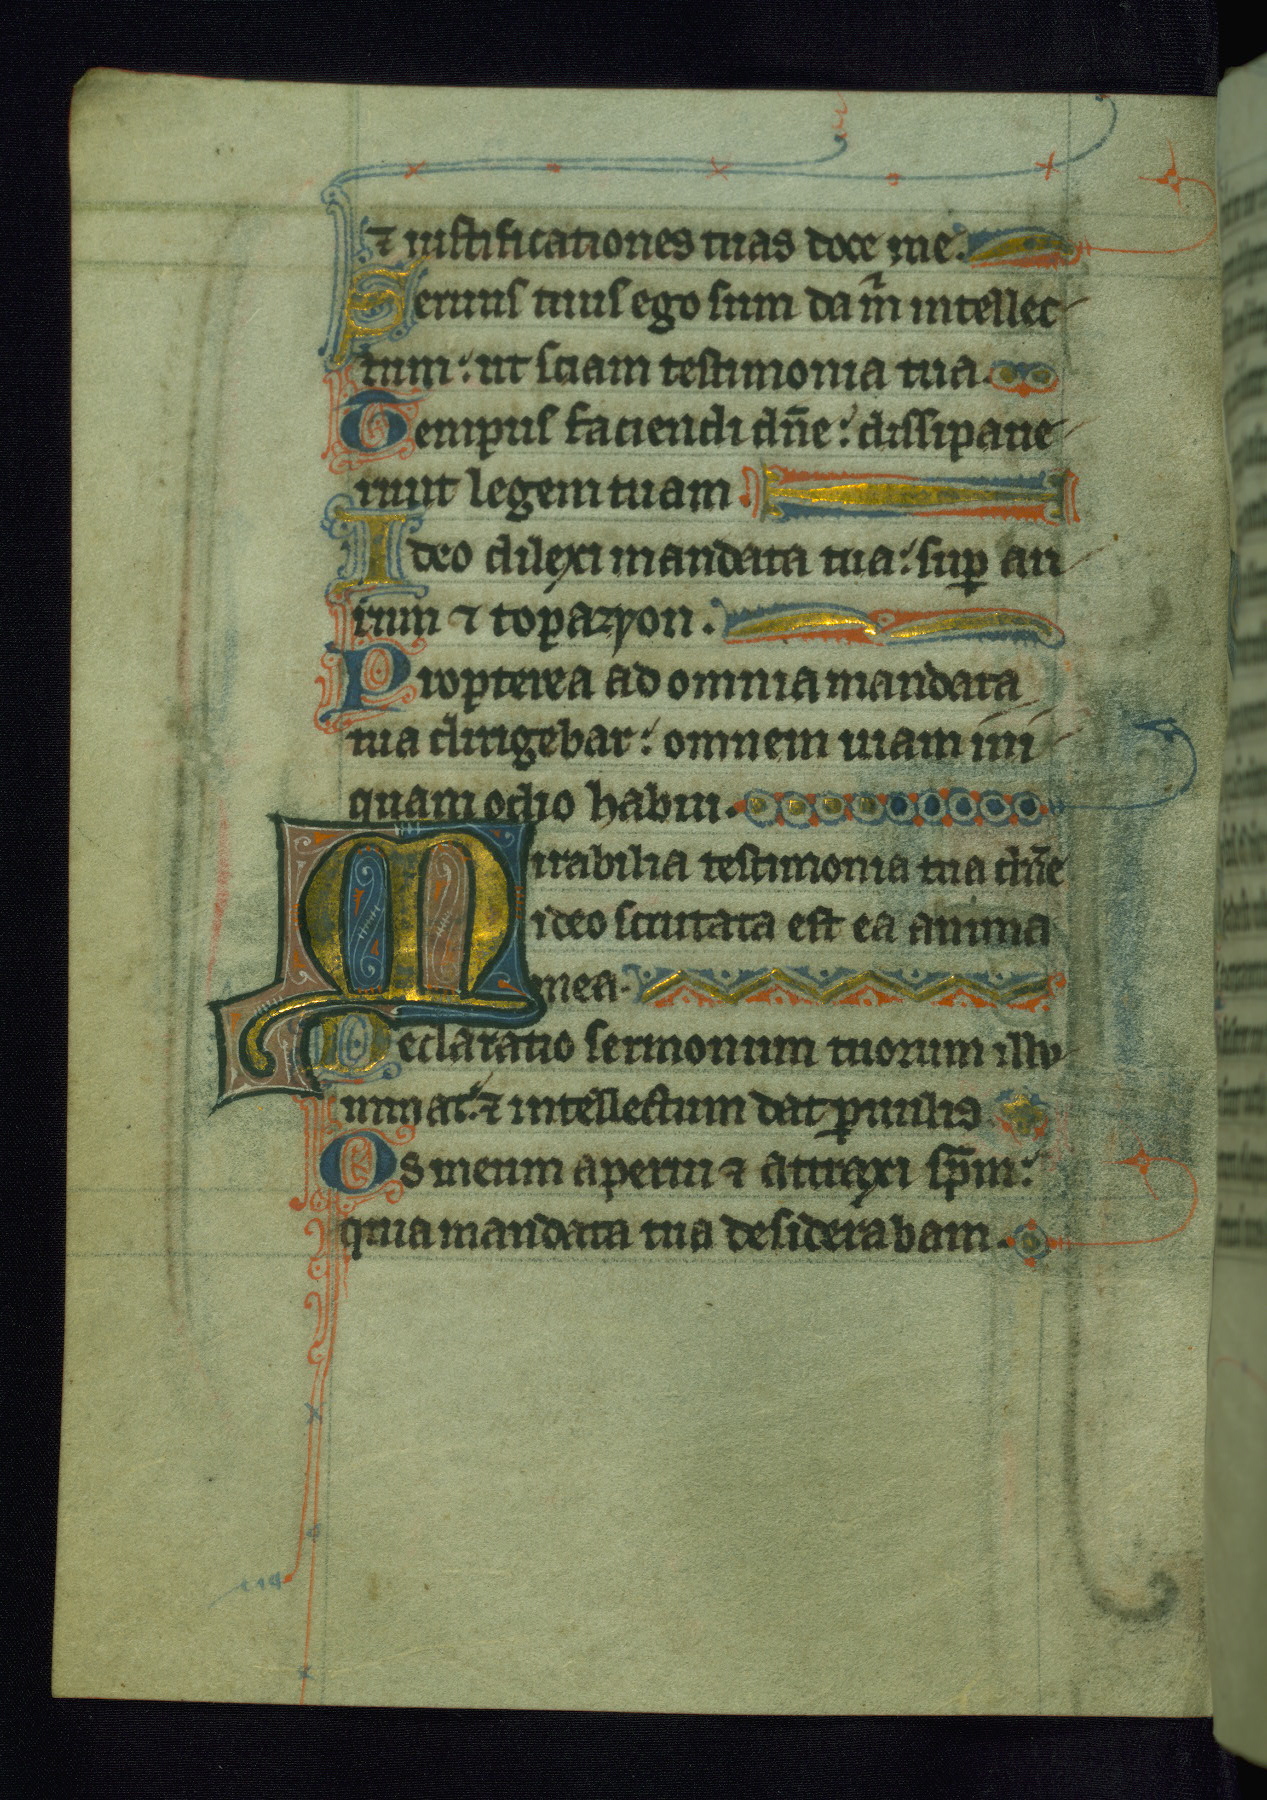 ⁊ iustificationes tuas doce me.
Seruus tuus ego sum da m̃ intellec
tum: ut sciam testimonia tua.
Tempus faciendi dñe: dissipaue
runt legem tuam.
Ideo dilexi mandata tua: sup̱ au
rum ⁊ topazyon.
Propterea ad omnia mandata
tua dirigebar: omnem uiam ini
quam odio habui.
Mirabilia testimonia tua dñe
ideo scrutata est ea anima
mea.
Declaratio sermonum tuorum illu
minat: ⁊ intellectum dat ꝑuulis
Os meum aperui ⁊ attraxi sp̄m:
quia mandata tua desiderabam.